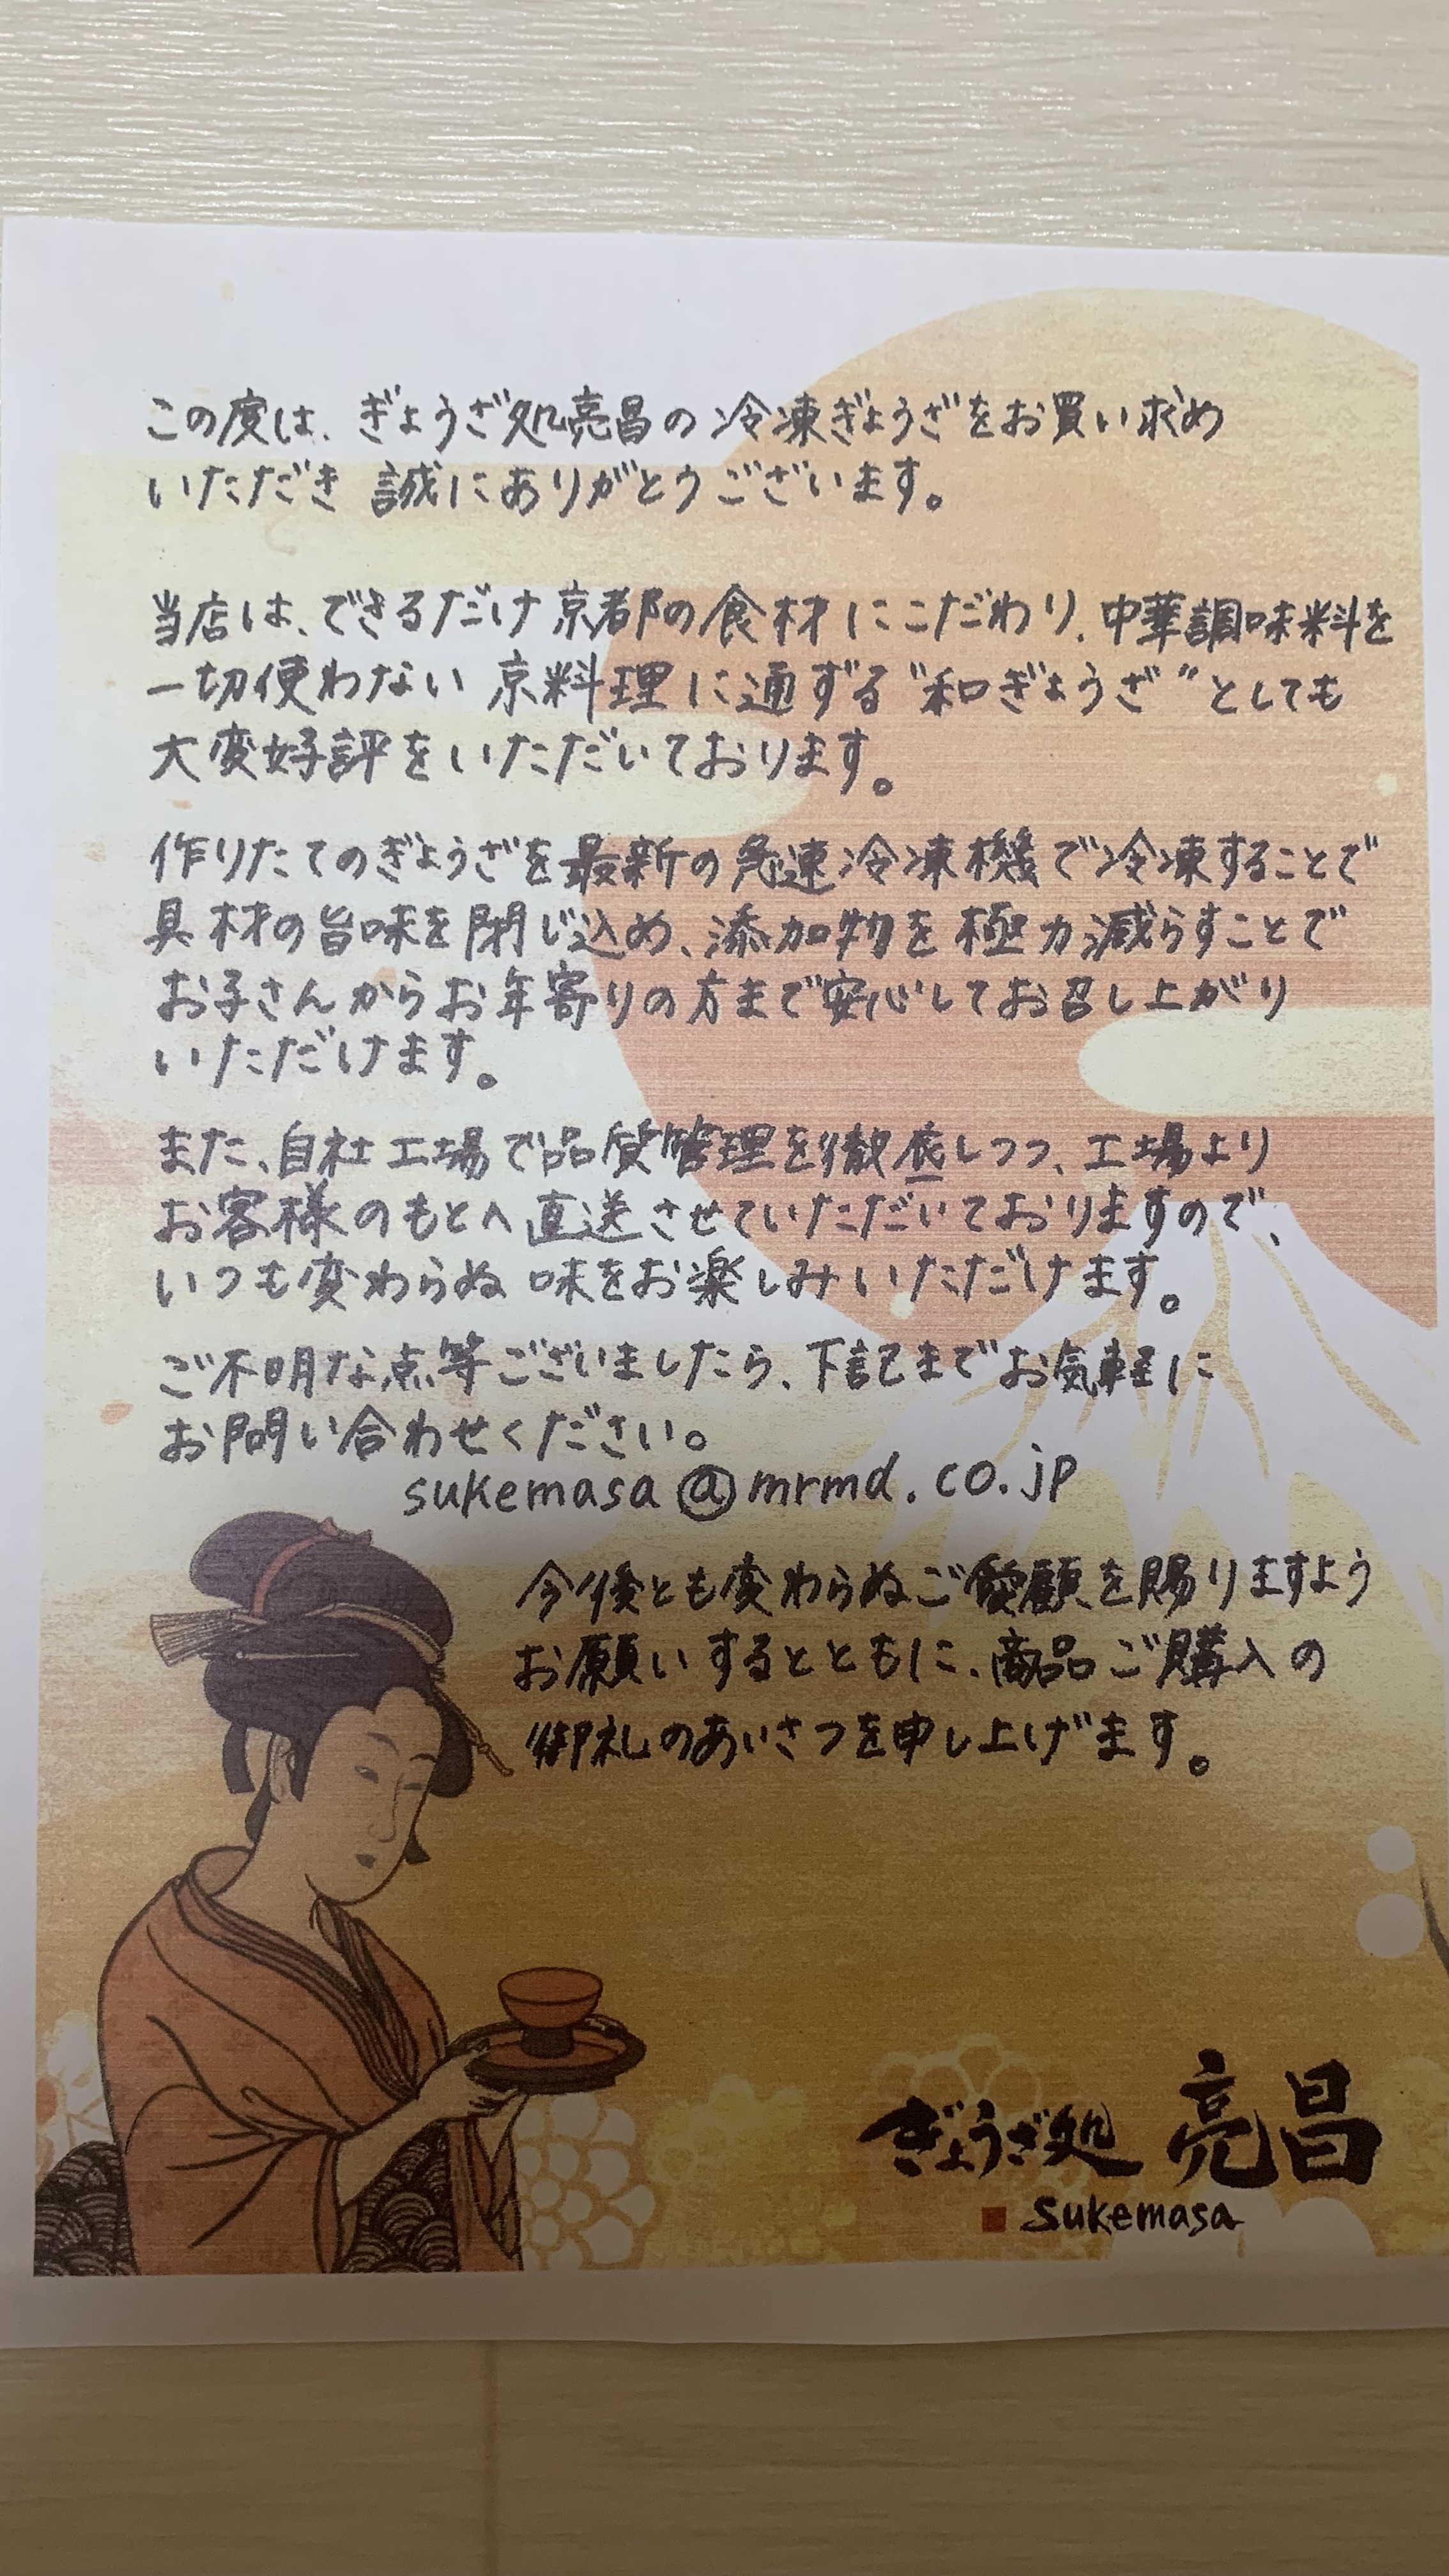 この度は、ぎょうざ処亮昌の冷凍ぎょうざをお買い求め
いただき 誠にありがとうございます。
当店は、できるだけ京都の食材にこだわり、中華調味料を
一切使わない 京料理に通ずる“和ぎょうざ”としても
大変好評をいただいております。
作りたてのぎょうざを最新の急速冷凍機で冷凍することで
具材の旨味を閉じ込め、添加物を極力減らすことで
お子さんからお年寄りの方まで安心してお召し上がり
いただけます。
また、自社工場で品質管理を徹底しつつ、工場より
お客様のもとへ直送させていただいておりますので、
いつも変わらぬ 味をお楽しみいただけます。
ご不明な点等ございましたら、下記までお気軽に
お問い合わせください。
sukemasa@mrmd.co.jp
今後とも変わらぬご愛顧を賜りますよう
お願いするとともに、商品ご購入の
御礼のあいさつを申し上げます。
ぎょうざ処 亮昌
Sukemasa